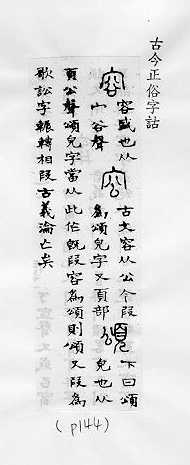 古今正俗字詁
容
容盛也从
宀谷聲
㝐
古文容从公今叚
為頌皃字又頁部
頌
下曰頌
皃也从
頁公聲頌皃字當从此作旣叚容為頌則頌又叚為
歌訟字輾轉相叚古義淪亡矣
(p144)